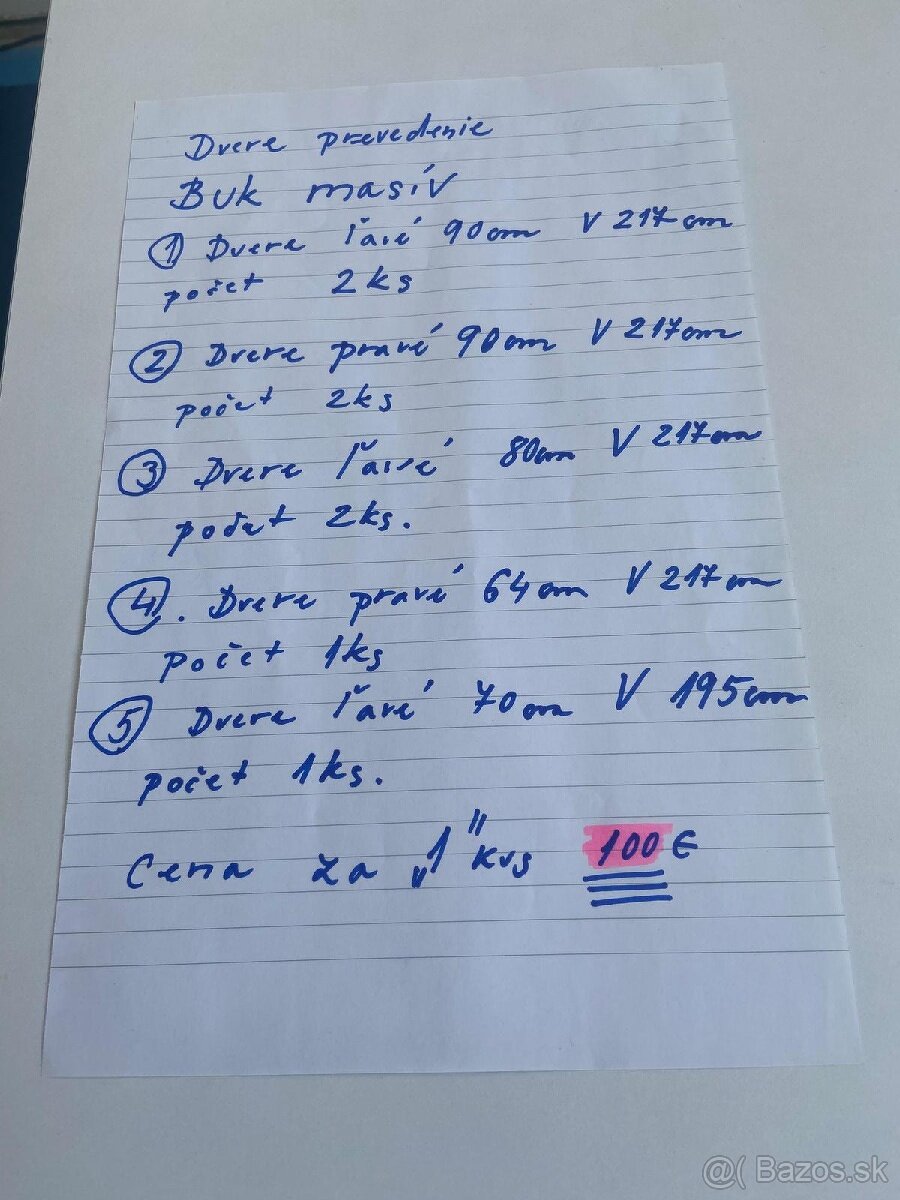 Dvere prevedenie
Buk masív
1 Dvere ľavé 90cm V 217cm
počet 2ks
2 Dvere pravé 90cm V 217cm
počet 2ks
3 Dvere ľavé 80cm V 217cm
počet 2ks.
4. Dvere pravé 64cm V 217cm
počet 1ks
5 Dvere ľavé 70cm V 195cm
počet 1ks.
Cena za 1" kus 100 €
@( Bazos.sk